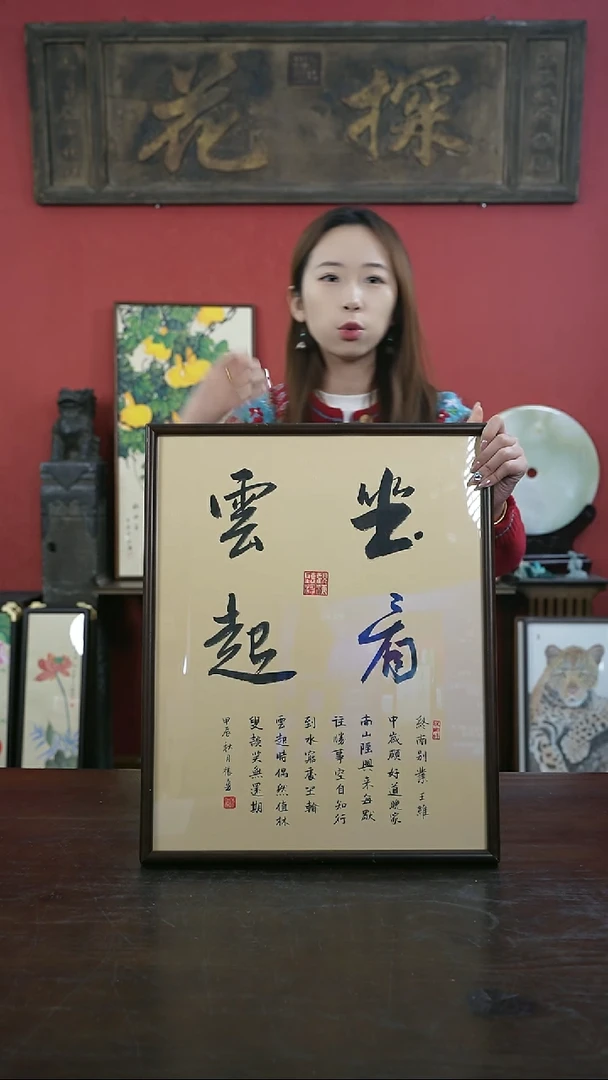 探花
坐看
雲起
終南别業 王維
中歲頗好道晚家
南山陲興來每獨
往勝事空自知行
到水窮處坐看
雲起時偶然值林
叟談笑無還期
甲辰秋月